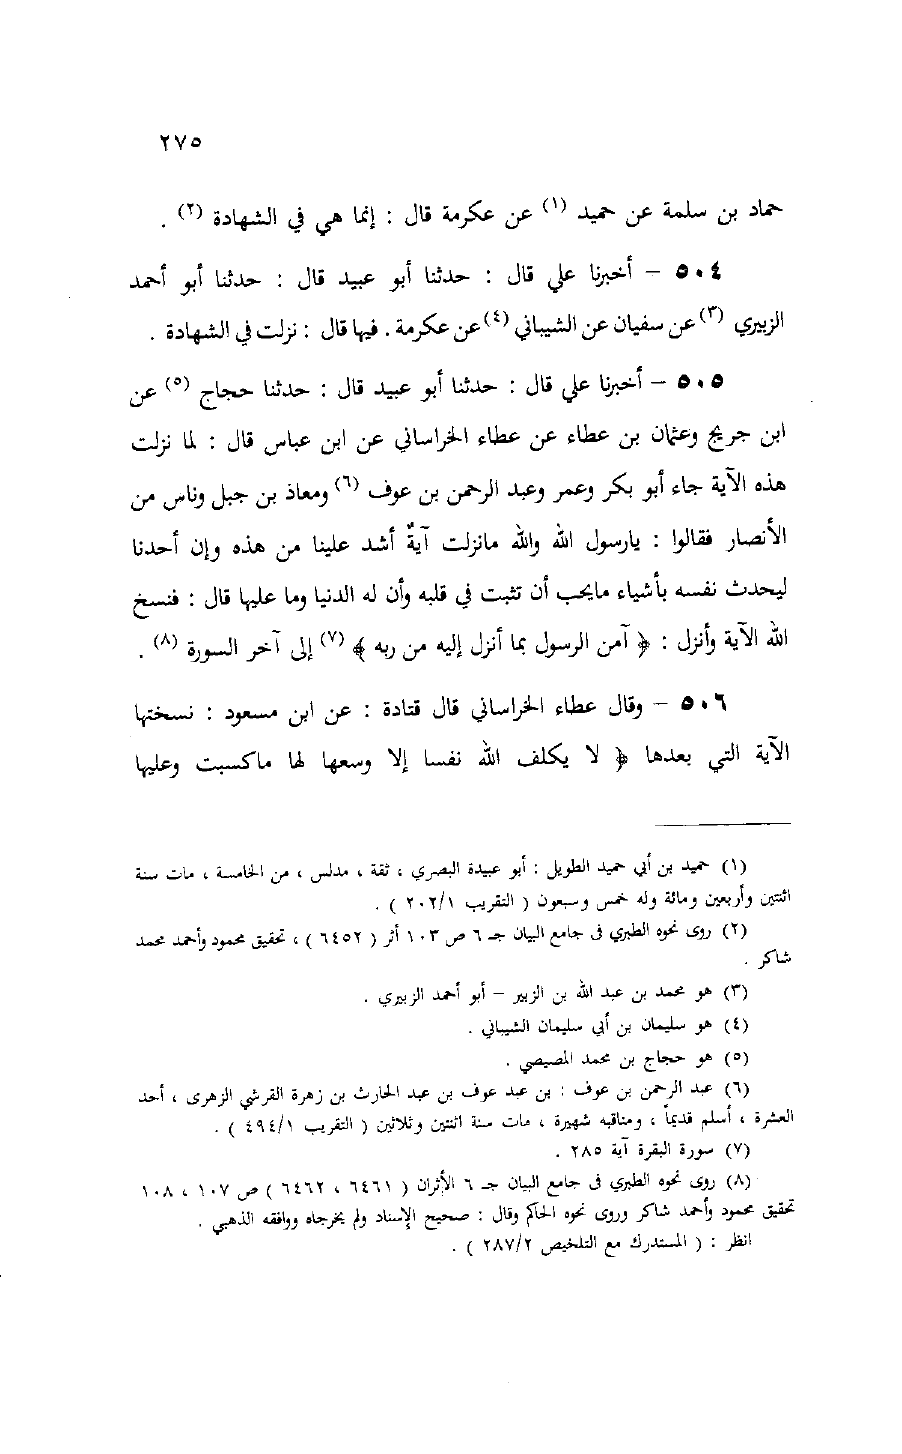 ٢٧٥
حماد بن سلمة عن حميد (١) عن عكرمة قال : إنما هي في الشهادة (٢) .
٥٠٤ – أخبرنا علي قال : حدثنا أبو عبيد قال : حدثنا أبو أحمد
الزبيري (٣) عن سفيان عن الشيباني (٤) عن عكرمة . فيها قال : نزلت في الشهادة .
٥٠٥ – أخبرنا علي قال : حدثنا أبو عبيد قال : حدثنا حجاج (٥) عن
ابن جريج وعثمان بن عطاء عن عطاء الخراساني عن ابن عباس قال : لما نزلت
هذه الآية جاء أبو بكر وعمر وعبد الرحمن بن عوف (٦) ومعاذ بن جبل وناس من
الأنصار فقالوا : يارسول الله والله مانزلت آيةٌ أشد علينا من هذه وإن أحدنا
ليحدث نفسه بأشياء مايحب أن تثبت في قلبه وأن له الدنيا وما عليها قال : فنسخ
الله الآية وأنزل : ﴿ آمن الرسول بما أنزل إليه من ربه ﴾ (٧) إلى آخر السورة (٨) .
٥٠٦ – وقال عطاء الخراساني قال قتادة : عن ابن مسعود : نسختها
الآية التي بعدها ﴿ لا يكلف الله نفسا إلا وسعها لها ماكسبت وعليها
(١) حميد بن أبي حميد الطويل : أبو عبيدة البصري ، ثقة ، مدلس ، من الخامسة ، مات سنة
اثنتين وأربعين ومائة وله خمس وسبعون ( التقريب ٢٠٢/١ ) .
(٢) روى نحوه الطبري فى جامع البيان جـ ٦ ص ١٠٣ أثر ( ٦٤٥٢ ) ، تحقيق محمود وأحمد محمد
شاكر .
(٣) هو محمد بن عبد الله بن الزبير – أبو أحمد الزبيري .
(٤) هو سليمان بن أبي سليمان الشيباني .
(٥) هو حجاج بن محمد المصيصي .
(٦) عبد الرحمن بن عوف : بن عبد عوف بن عبد الحارث بن زهرة القرشي الزهرى ، أحد
العشرة ، أسلم قديماً ، ومناقبه شهيرة ، مات سنة اثنتين وثلاثين ( التقريب ٤٩٤/١ ) .
(٧) سورة البقرة آية ٢٨٥ .
(٨) روى نحوه الطبري فى جامع البيان جـ ٦ الأثران ( ٦٤٦١ ، ٦٤٦٢ ) ص ١٠٧ ، ١٠٨
تحقيق محمود وأحمد شاكر وروى نحوه الحاكم وقال : صحيح الإسناد ولم يخرجاه ووافقه الذهبي .
انظر : ( المستدرك مع التلخيص ٢٨٧/٢ ) .